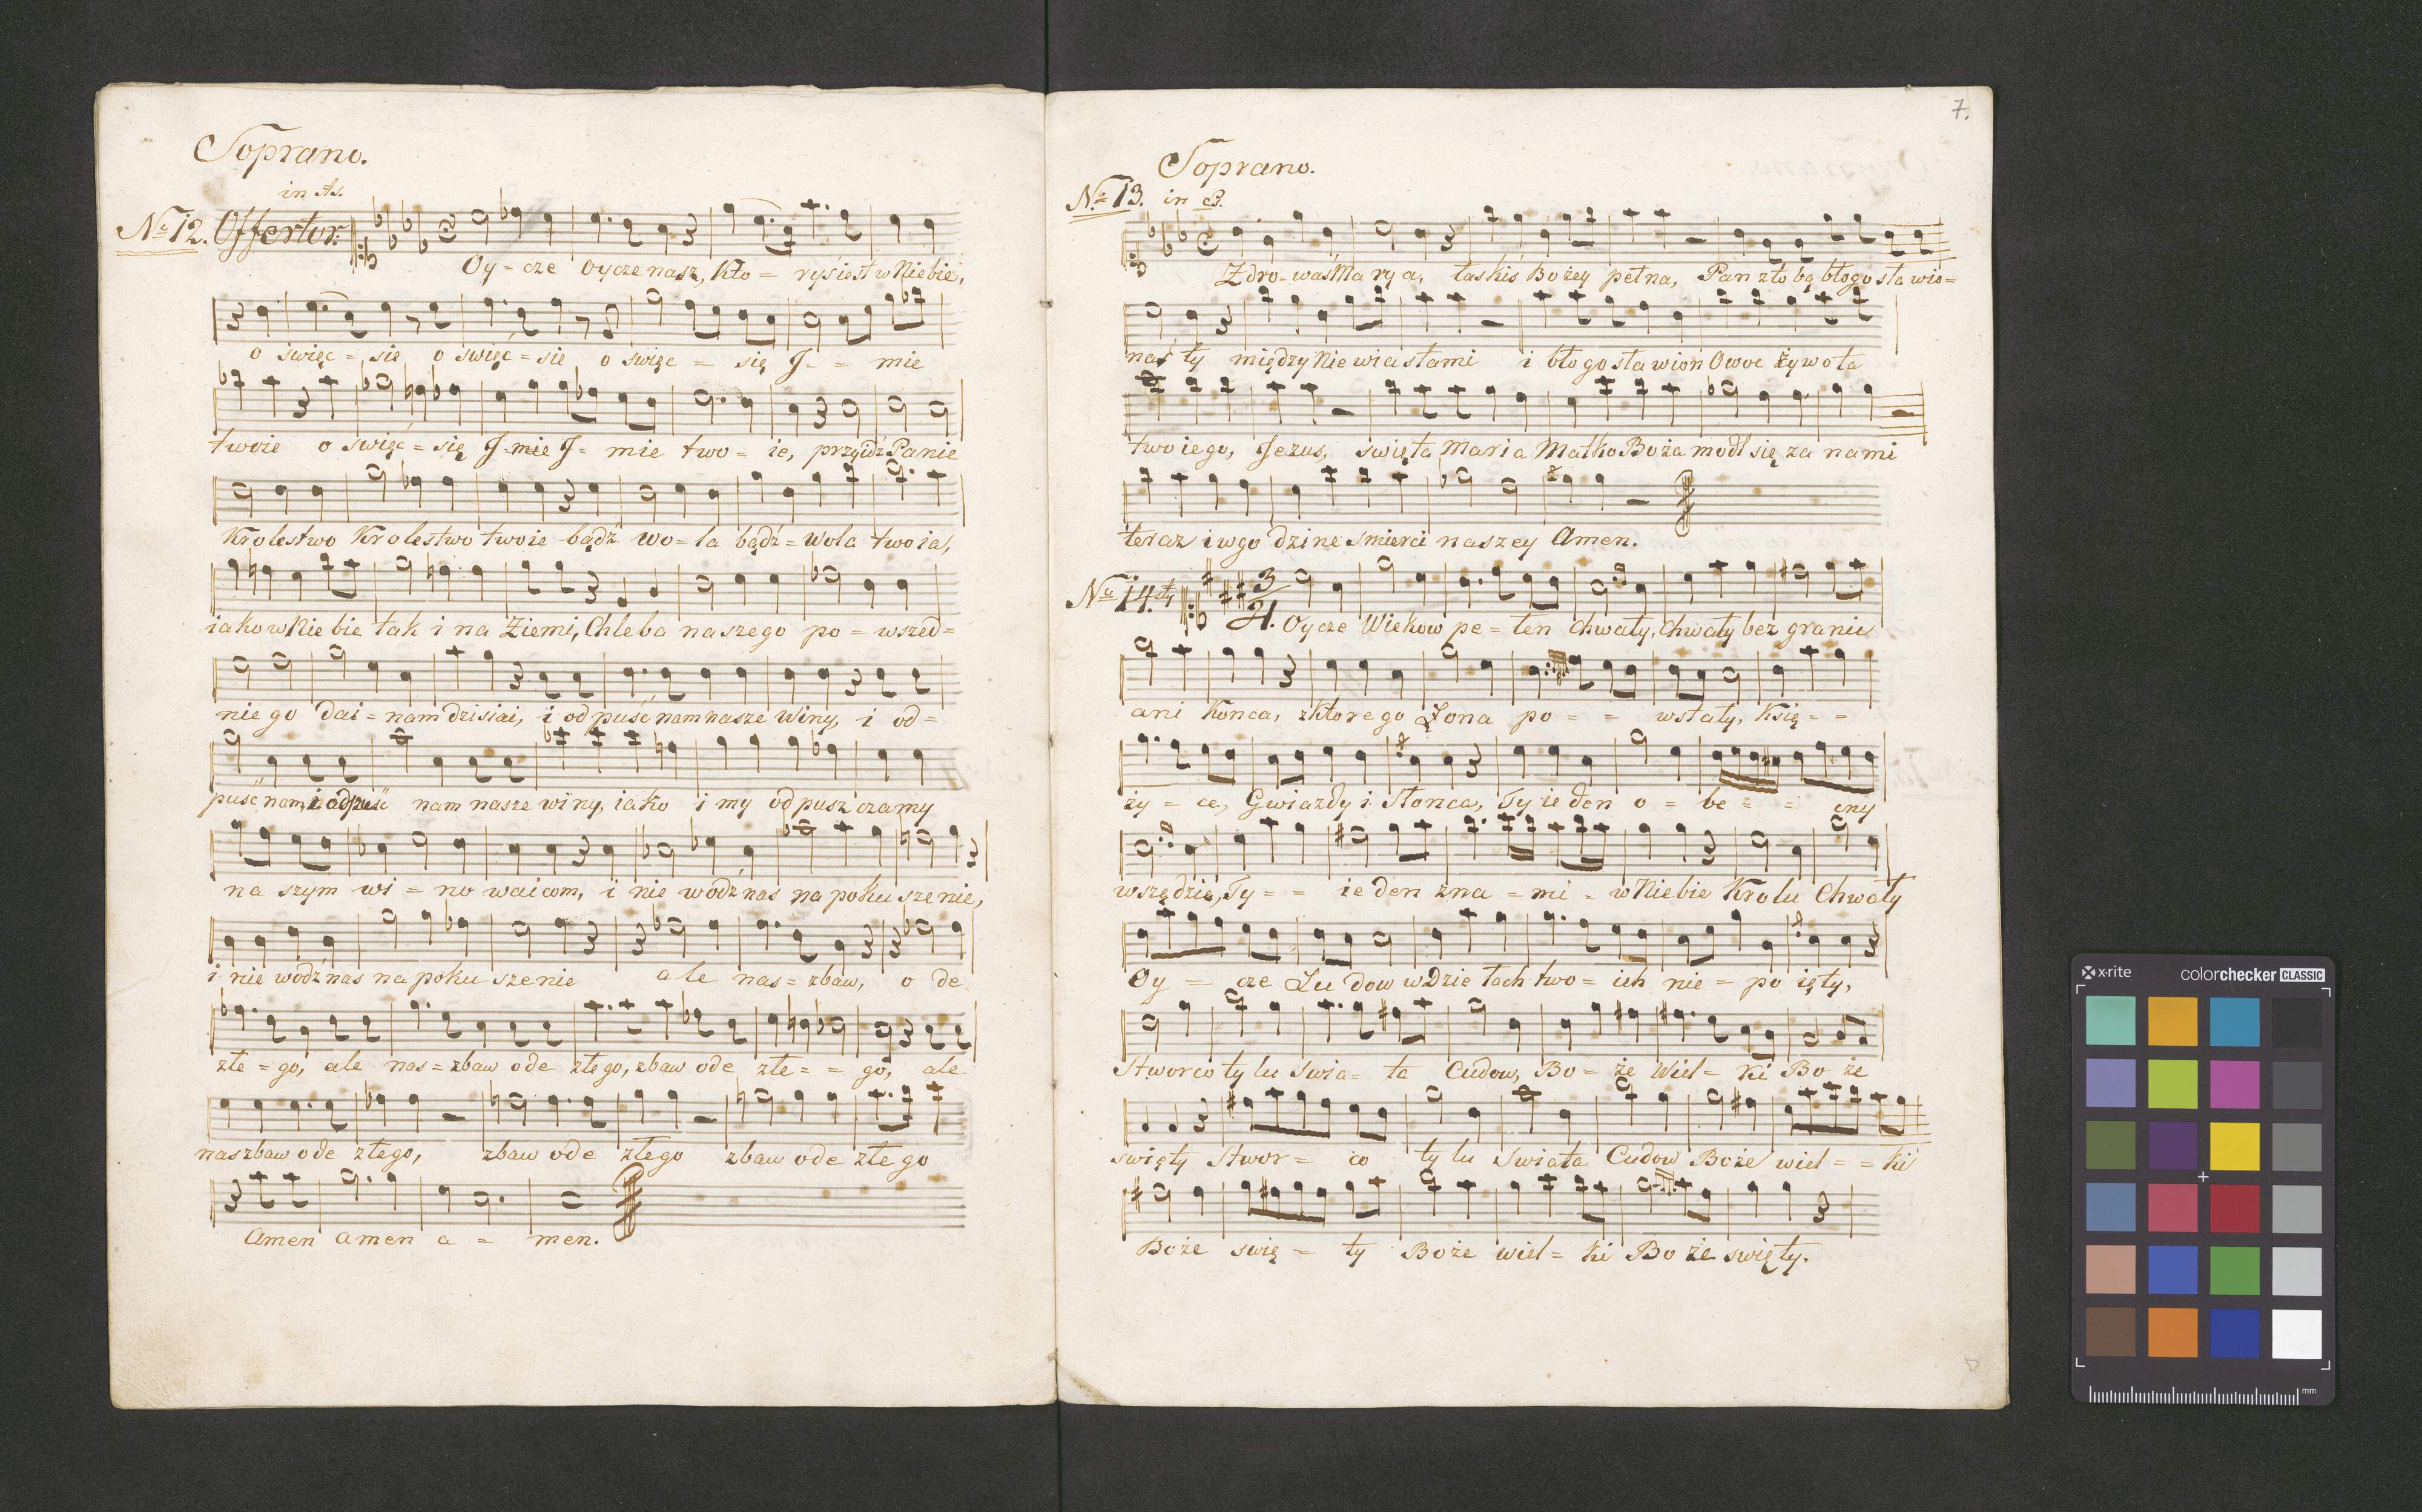 Soprano.
in As.
No 12. Offertor:
Oy = cze Oycze nasz, Kto = rys iest w Niebie,
o swięc = się o swięć = sie o swięc = się J = = mie
twoie o swięć = się J = mie J = mie two = ie, przyidz Panie
Krolestwo Krolestwo twoie bądź wo = la bądź = Wola twoia,
iako w Niebie tak i na Ziemi, Chleba naszego po = wszed =
niego dai = nam dzisiai, i odpuść nam nasze winy, i od =
puść nam, i odpuść nam nasze winy, iako i my odpuszczamy
naszym wi = nowaicom, i nie wodź nas na pokuszenie,
i nie wodź nas na pokuszenie ale nas = zbaw, o de
złe = go, ale nas = zbaw ode złego, zbaw ode złe = = go, ale
nas zbaw ode złego, zbaw ode złego zbaw ode złego
Amen amen a = men.
7.
Soprano.
No 13. in B.
Zdro = waś Marya, łaskiś Bożey pełna, Pan z tobą błogosławio =
naś ty między Niewiastami i błogosławion Owoc żywota
twoiego, Jezus, swięta Maria Matko Boża modl się za nami
teraz i w godzine smierci naszey Amen.
No 14.sty 3/4. Oycze Wiekow pe = łen chwały, Chwały bez granic
ani Konca, z ktorego Łona po = = wstały, Xsię = =
ży = ce, Gwiazdy i Słonca, Ty ieden o = be = = cny
wszędzie, Ty = = ieden zna = mi = w Niebie Krolu Chwały
Oy = cze Ludow w Dziełach two = ich nie = poięty,
Stworco tylu swia = ta Cudow, Bo = że Wiel = ki Boże
swięty Stwor = co tylu Swiata Cudow Boże wiel = = ki
Boże swię = ty Boże wiel = ki Boże swięty.
x-rite colorchecker CLASSIC
mm